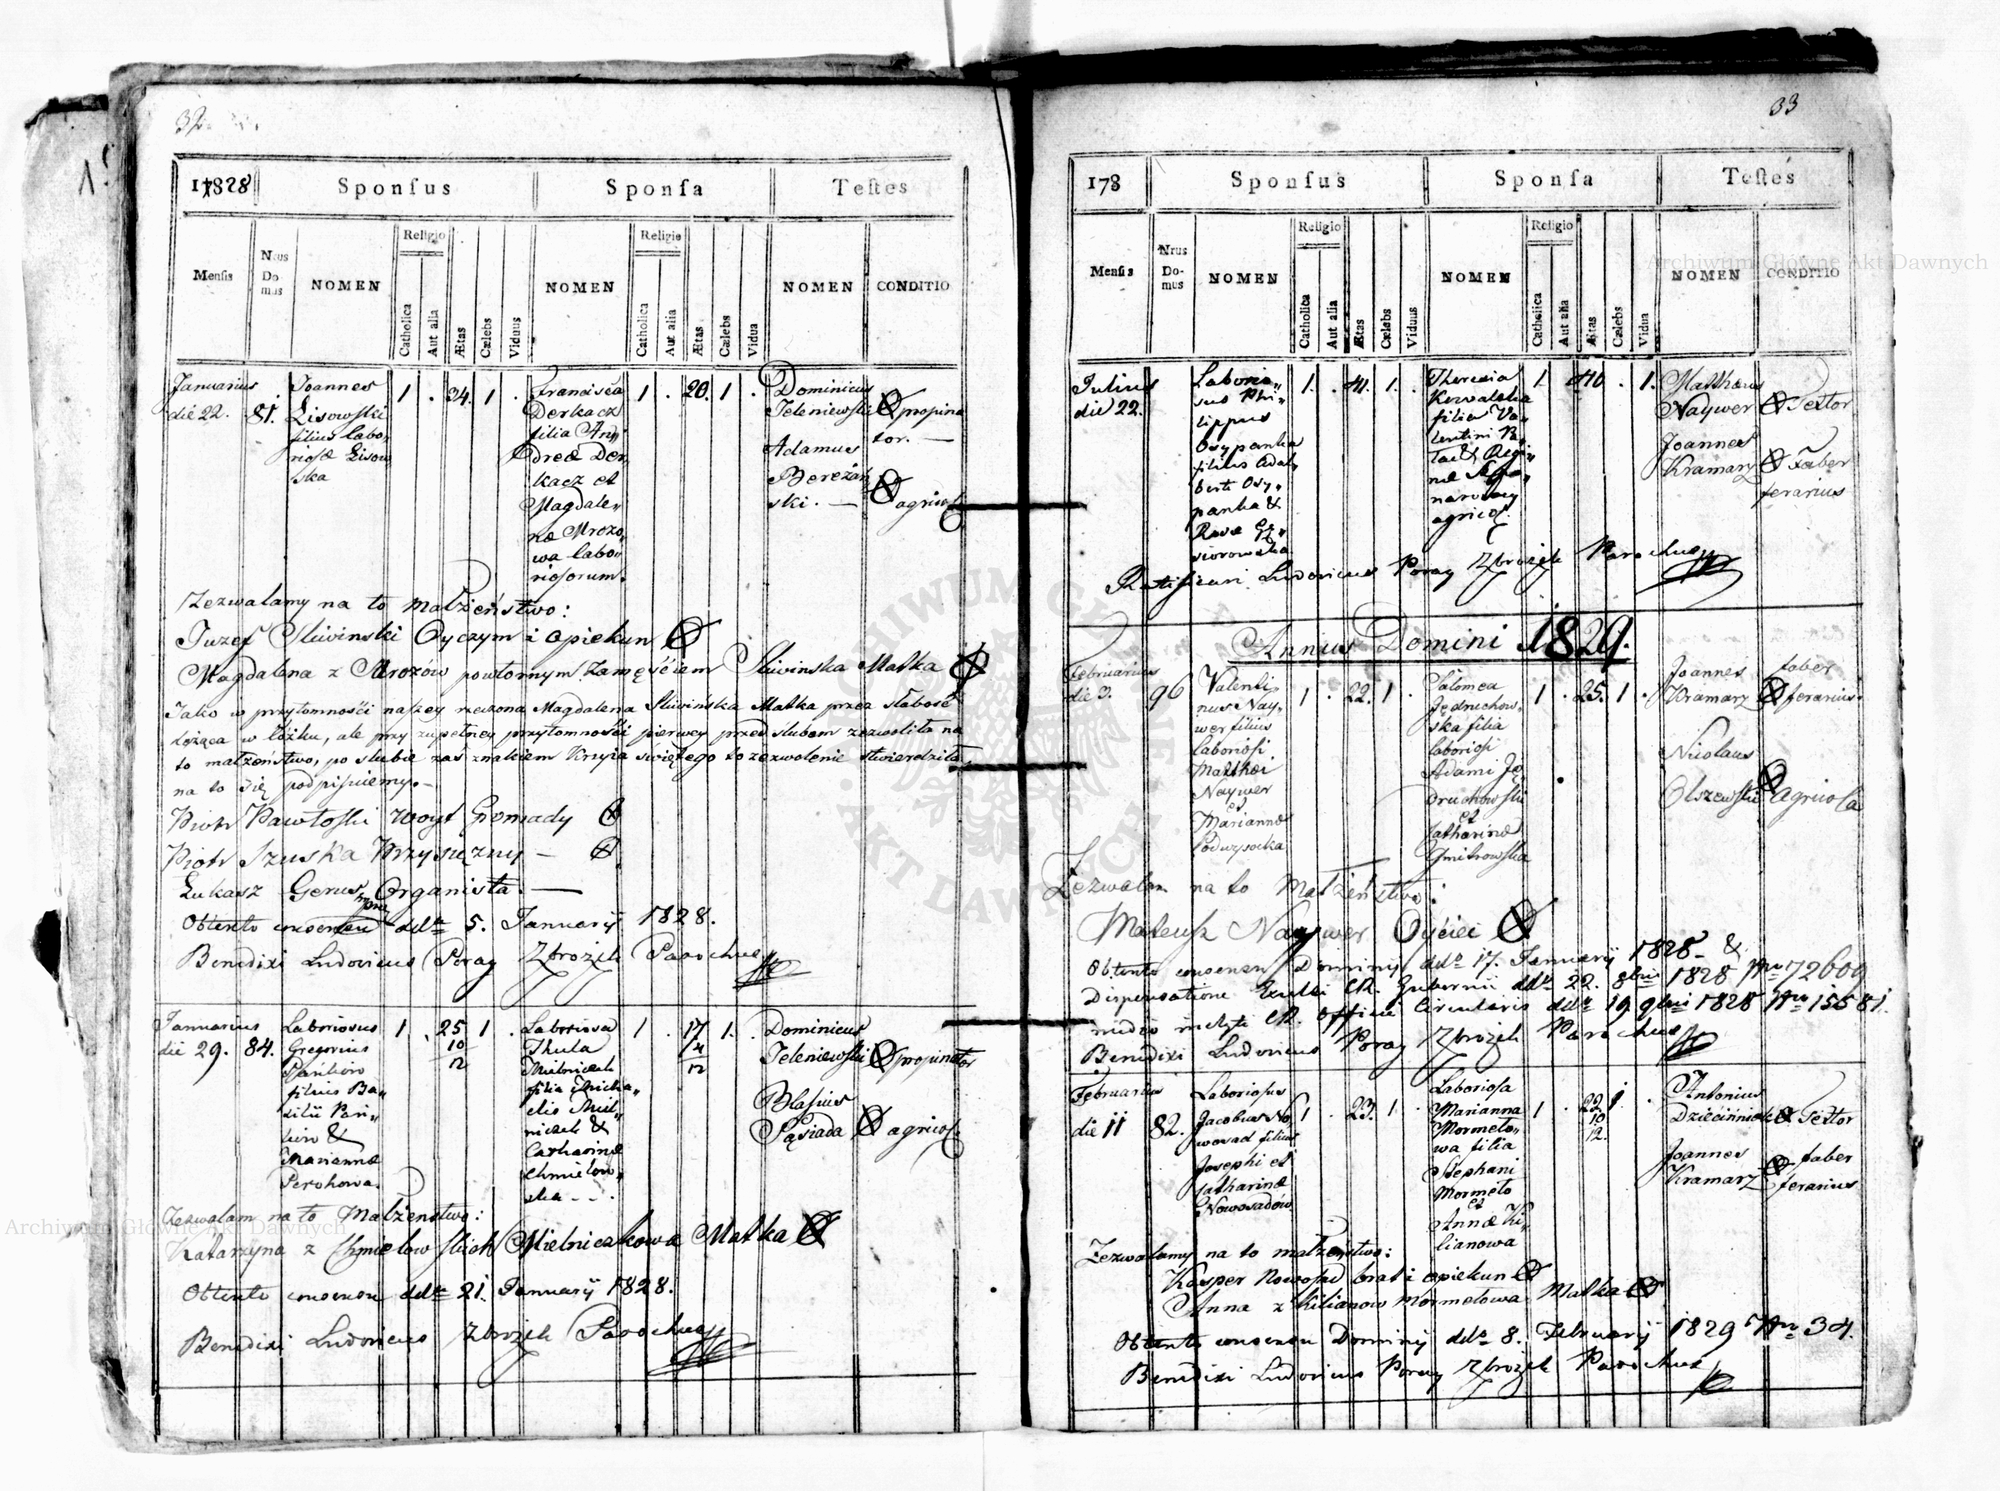 32
17828
Sponsus
Sponsa
Testes
Mensis
Nrus Do- mus
NOMEN
Religio
Catholica
Aut alia
Ætas
Cælebs
Viduus
NOMEN
Religio
Catholica
Aut alia
Ætas
Cælebs
Vidua
NOMEN
CONDITIO
Januarius
die 22.
81.
Joannes
Lisowski
filius labo„
riosæ Lisow
ska
1 . 24. 1 .
Francisca
Derkacz
filia An„
dreæ Der„
kacz et
Magdale„
næ Mrozo„
wa labo„
riosorum.
1 . 20. 1 .
Dominicus
Teleniewski propina
tor. —
Adamus
Bereżań
ski. — agricola
Zezwalamy na to małżeństwo:
Juzef Sliwinski Oyczym i opiekun
Magdalena z Mrozów powtornym zamęściem Sliwinska Matka
Jako w przytomności naszey rzeczona Magdalena Sliwińska Matka przez słabość
leżąca w łóżku, ale przy zupełney przytomności pierwey przed slubem zezwoliła na
to małżeństwo, po slubie zaś znakiem krzyża świętego to zezwolenie stwierdziła,
na to się podpisuiemy.—
Piotr Pawłoski Woyt Gromady
Piotr Szuska Przysiężny —
Łukasz Gerus Organista. —
Obtento consensu ddto 5. Januarij 1828.
Benedixi Ludovicus Poray Zbrożek Parochus
Januarius
die 29. 84.
Laboriosus
Gregorius
Pańkow
filius Ba„
silii Pań„
kow &
Marianna
Perohowa.
1 . 25 10/12 1 .
Laboriosa
Thecla
Mielniczek
filia Micha„
elis Miel„
niczek &
Catharinæ
Chmielow„
ska - - .
1 . 17 4/12 1 .
Dominicus
Teleniewski propinator
Blasius
Sąsiada agricola
Zezwalam na to Małżenstwo:
Katarzyna z Chmielowskich Mielniczkowa Matka
Obtento consensu ddto 21. Januarij 1828.
Benedixi Ludovicus Zbrożek Parochus
33
178
Sponsus
Sponsa
Testes
Mensis
Nrus Do- mus
NOMEN
Religio
Catholica
Aut alia
Ætas
Cælebs
Viduus
NOMEN
Religio
Catholica
Aut alia
Ætas
Cælebs
Vidua
NOMEN
CONDITIO
Julius
die 22.
Laborio„
sus Phi„
lippus
Osypanka
filius Adal„
berti Osy„
panka &
Rosa Gą
siorowska
1. . 41. 1. .
Theresia
Kowalska
filia Va„
lentini
agricol.
1 . 40 . 1.
Matthæus
Naywer Textor
Joannes
Kramarz Faber
ferarius
Ratificavi Ludovicus Poray Zbrożek Parochus
Annus Domini 1829.
Februarius
die 3. 96
Valenti„
nus Nay„
wer filius
laboriosi
Matthæi
Naywer
et
Mariannæ
Podwysocka
1 . 22. 1 .
Salomea
Jędruchow„
ska filia
laboriosi
Adami Ję„
druchowski
et
Catharinæ
Gmitrowska
1 . 25. 1 .
Joannes faber
Kramarz ferarius.
Nicolaus
Olszewski agricola
Zezwalam na to Małżeństwo:
Mateusz Naywer Oyciec
Obtento consensu Dominij ddto 17. Januarij 1828 &
Dispensatione Excelsi CR. Gubernii ddto 22. 8bris 1828 Nro 72609
medio inclyti CR. Officii Circularis ddto 19 9bri 1828 Nro 15581.
Benedixi Ludovicus Poray Zbrożek Parochus
Februarius
die 11 82.
Laboriosus
Jacobus No„
wosad filius
Josephi et
Catharinæ
Nowosadów
1 . 23. 1 .
Laboriosa
Marianna
Mormeto„
wa filia
Stephani
Mormeto
et
Annæ Ki„
lianowa
1 . 22 10/12 1 .
Antonius
Dziecinniak Textor
Joannes faber
Kramarz ferarius
Zezwalamy na to małżeństwo:
Kasper Nowosad brat i opiekun
Anna z Kilianow Mormetowa Matka
Obtento consensu Dominij ddto 8. Februarij 1829 Nro 34.
Benedixi Ludovicus Poray Zbrożek Parochus
Archiwum Główne Akt Dawnych
Archiwum Główne Akt Dawnych
ARCHIWUM GŁÓWNE
AKT DAWNYCH